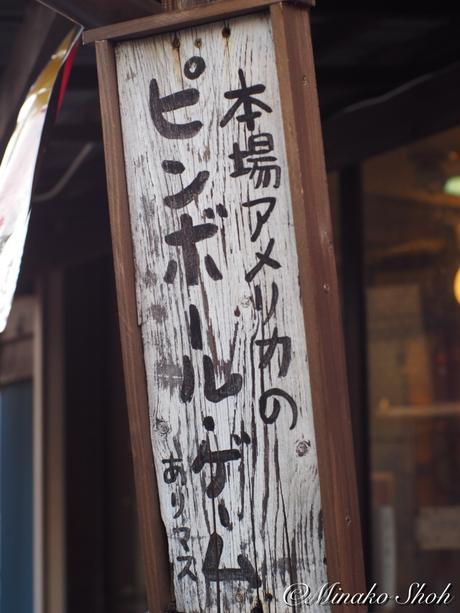 本場アメリカの
ピンボール・ゲーム
あリマス
@Minako Shoh